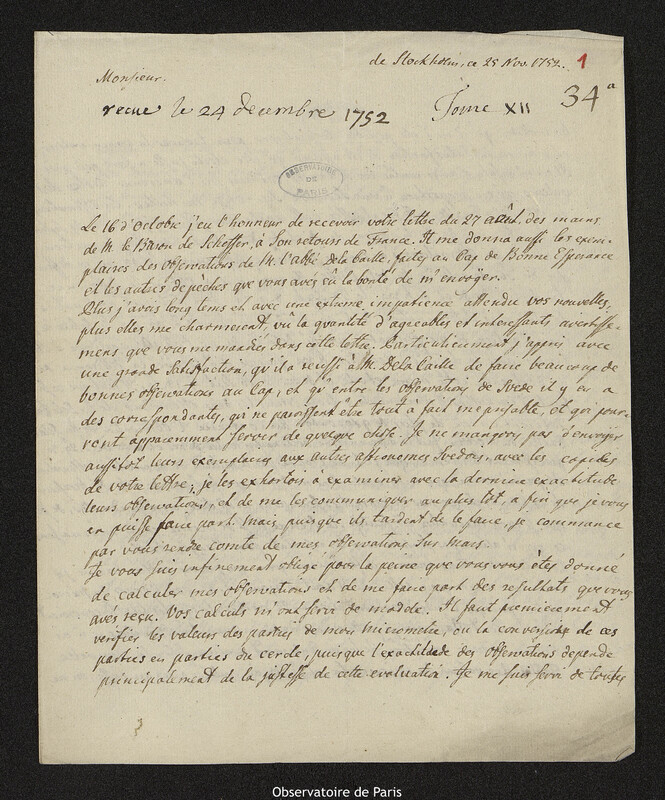 de Stockholm, ce 25 Nov. 1752. 1
Monsieur.
recue le 24 decembre 1752 Tome XII 34 a
OBSERVATOIRE
DE
PARIS
Le 16 d'Octobre j'eu l'honneur de recevoir votre lettre du 27 août, des mains
de M. le Baron de Scheffer, à son retours de France. Il me donna aussi les exem-
plaires des Observations de M. l'abbé De la Caille, faites au Cap de Bonne Esperance
et les autres depèches que vous avés eû la bonté de m'envoyer.
Plus j'avois long tems et avec une extreme impatience attendu vos nouvelles,
plus elles me charmerent, vû la quantité d'agreables et interessants avertisse-
mens que vous me mandés dans cette lettre. Particulierement j'appris avec
une grande satisfaction, qu'il a reussi à M. De la Caille de faire beaucoup de
bonnes observations au Cap, et qu'entre les observations de Svede il y en a
des correspondantes, qui ne paroissent être tout à fait meprisable, et qui pour-
ront apparemment servir de quelque chose. Je ne manquois pas d'envoyer
aussitôt leurs exemplaires aux autres astronomes Svedois, avec les copies
de votre lettre; je les exhortois à examiner avec la derniere exactitude
leurs observations, et de me les communiquer au plus tôt, a fin que je vous
en puisse faire part. Mais, puisque ils tardent de le faire, je commance
par vous rendre comte de mes observations sur Mars.
Je vous suis infinement obligé pour la peine que vous vous êtes donné
de calculer mes observations et de me faire part des resultats que vous
avés reçu. Vos calculs m'ont servi de modele. Il faut premierement
verifier les valeurs des parties de mon micrometre, ou la conversion de ces
parties en parties du cercle, puisque l'exactitude des observations depende
principalement de la justesse de cette evaluation. Je me suis servi de toutes
Observatoire de Paris